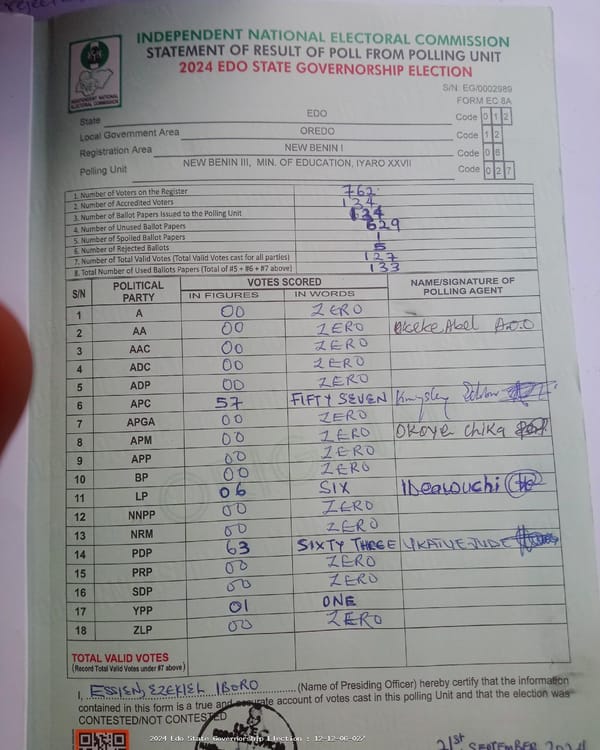 INDEPENDENT NATIONAL ELECTORAL COMMISSION
STATEMENT OF RESULT OF POLL FROM POLLING UNIT
2024 EDO STATE GOVERNORSHIP ELECTION
INDEPENDENT NATIONAL ELECTORAL COMMISSION
S/N: EG/0002989
FORM EC 8A
State EDO Code 0 1 2
Local Government Area OREDO Code 1 2
Registration Area NEW BENIN I Code 0 6
Polling Unit NEW BENIN III, MIN. OF EDUCATION, IYARO XXVII Code 0 2 7
1. Number of Voters on the Register 762
2. Number of Accredited Voters 134
3. Number of Ballot Papers Issued to the Polling Unit
4. Number of Unused Ballot Papers 629
5. Number of Spoiled Ballot Papers 1
6. Number of Rejected Ballots 5
7. Number of Total Valid Votes (Total Valid Votes cast for all parties) 127
8. Total Number of Used Ballots Papers (Total of #5 + #6 + #7 above) 133
S/N POLITICAL PARTY VOTES SCORED NAME/SIGNATURE OF POLLING AGENT
IN FIGURES IN WORDS
1 A 00 ZERO
2 AA 00 ZERO Okeke Abel A.O.O
3 AAC 00 ZERO
4 ADC 00 ZERO
5 ADP 00 ZERO
6 APC 57 FIFTY SEVEN Kingsley
7 APGA 00 ZERO
8 APM 00 ZERO OKOYE CHIKA
9 APP 00 ZERO
10 BP 00 ZERO
11 LP 06 SIX
12 NNPP 00 ZERO
13 NRM 00 ZERO
14 PDP 63 SIXTY THREE
15 PRP 00 ZERO
16 SDP 00 ZERO
17 YPP 01 ONE
18 ZLP 00 ZERO
TOTAL VALID VOTES
(Record Total Valid Votes under #7 above)
I, ESSIEN, EZEKIEL IBORO (Name of Presiding Officer) hereby certify that the information
contained in this form is a true and accurate account of votes cast in this polling Unit and that the election was
CONTESTED/NOT CONTESTED
21st SEPTEMBER 2024
2024 Edo State Governorship Election : 12-12-06-027